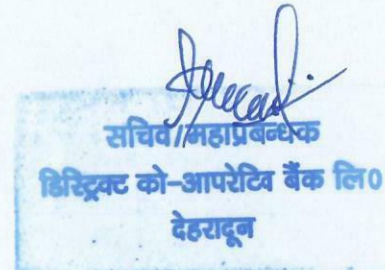 सचिव/महाप्रबन्धक
डिस्ट्रिक्ट को-आपरेटिव बैंक लि०
देहरादून